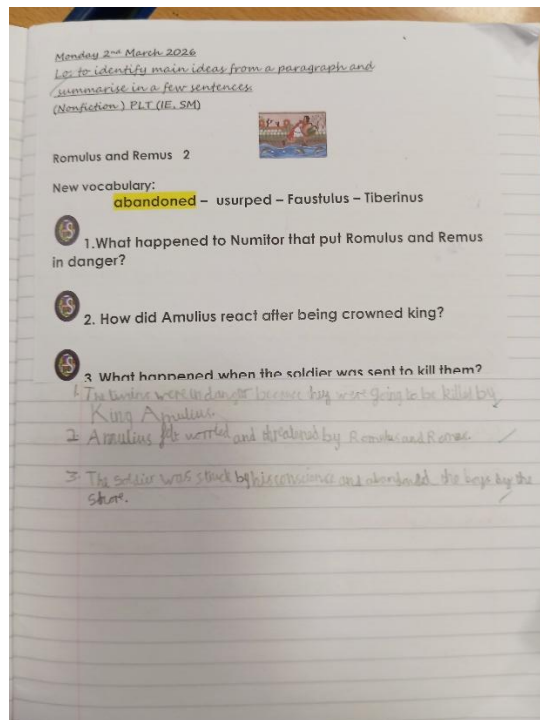 Monday 2nd March 2026
Lo: to identify main ideas from a paragraph and
summarise in a few sentences.
(Nonfiction) PLT (IE, SM)
Romulus and Remus 2
New vocabulary:
abandoned – usurped – Faustulus – Tiberinus
1.What happened to Numitor that put Romulus and Remus
in danger?
2. How did Amulius react after being crowned king?
3 What happened when the soldier was sent to kill them?
1. The were in danger because they were going to be killed by
King Amulius.
2. Amulius felt worried and by Romulus and
3. The soldier was struck by his conscience and the boys by the
shore.